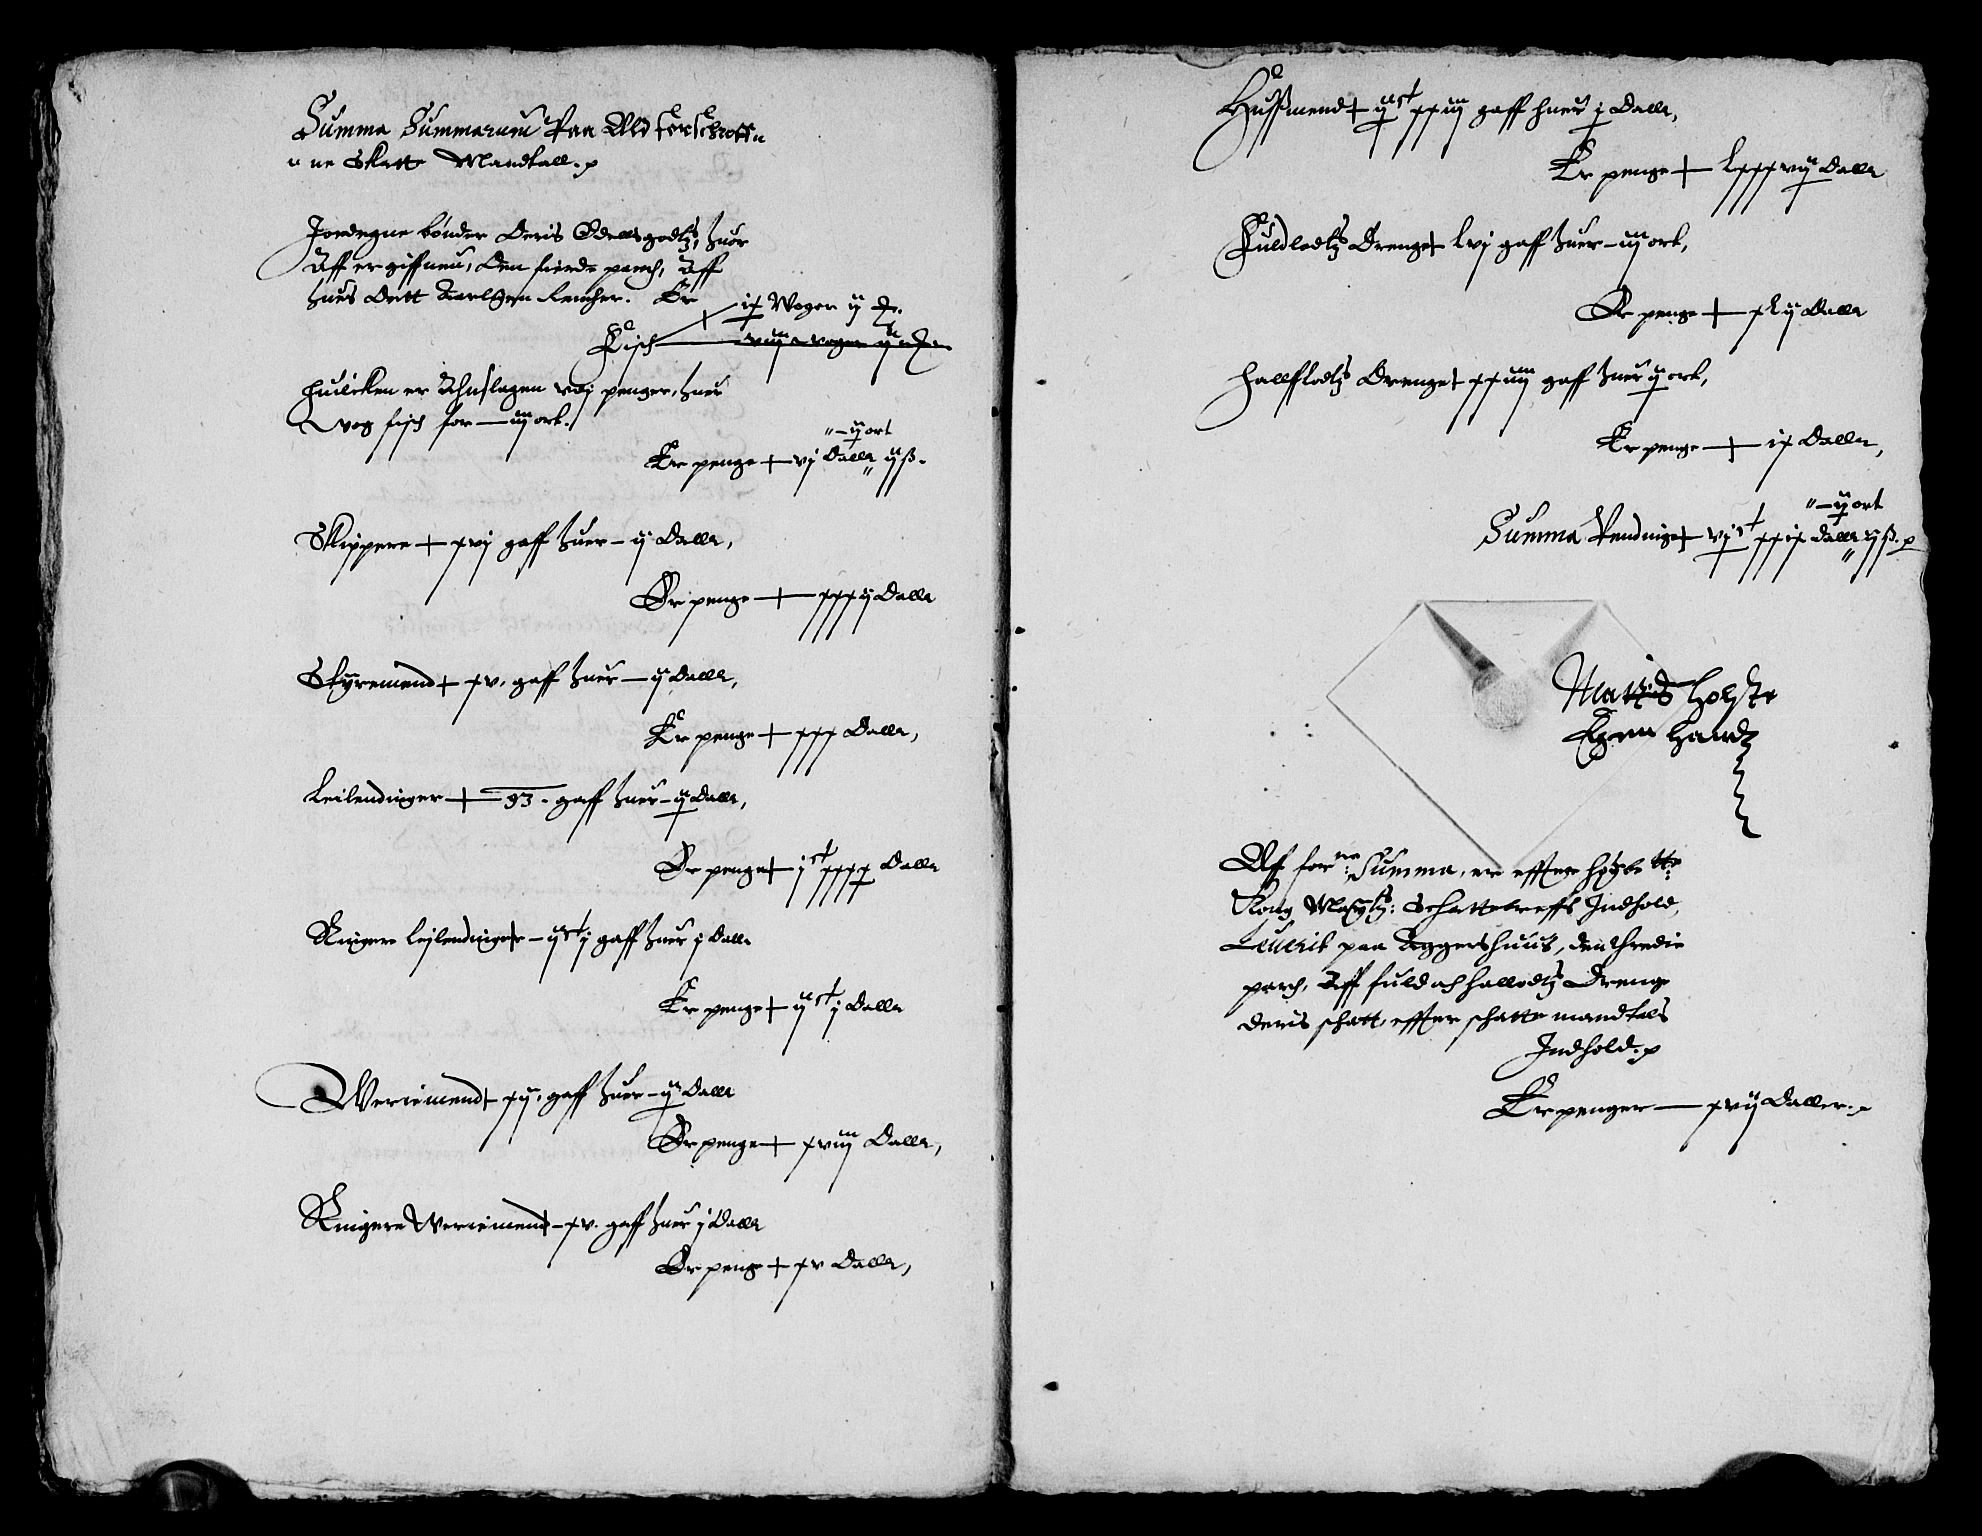 Summa Summarum Paa Ald forschreffn
ne Skatte Mandtall.
Jordegne bønder Deris Odellsgodtz, huor
Aff er giffneu, Den fierde parch, Aff
huis Dett Aarligen kand
Er
ix Woger ij
Fisch
viij woger ij
huilcken er Ahnslagen vdj penger, huer
wog fisch for – iij ort.
– ij ort
Er penge + vj Daller ij ß.
Skippere + xvj gaff huer – ij Daller,
Er penge + xxxij Daller
Styremend + xv. gaff huer – ij Daller,
Er penge + xxx Daller,
Leilendinger + 93. gaff huer – ij Daller,
Er penge + jct xxxx Daller
Ringere Leilendinger – ijct j gaff huer j Daller
Er penge + ijct j Daller
Weriemend + xij, gaff huer – ij Daller
Er penge + xviij Daller,
Ringere Weriemend – xv. gaff huer j Daller
Er penge + xv Daller,
Hussmend + ijct xxiij gaff huer j Daller,
Er penge + Lxxxvij Daller
Fuldlodtz Drenge + Lvj gaff huer – iij ort,
Er penge + xLij Daller
Hallfflodtz Drenge + xxiiij gaff huer ij ort,
Er penge + ix Daller,
– ij ort
Summa Pendinge + vjct xxix daller ij ß.
Mattis Holste
Egen Handtz
Aff forne: Summa, er effter høybette:
Kong Maiestz: Schattebreffs Indhold,
Leuerit paa Aggershuus, den thredie
parch, Aff fuld och hallodtz Drenge
deris schatt, effter schatte mandtals
Indhold.
Er penger – xvij Daller.